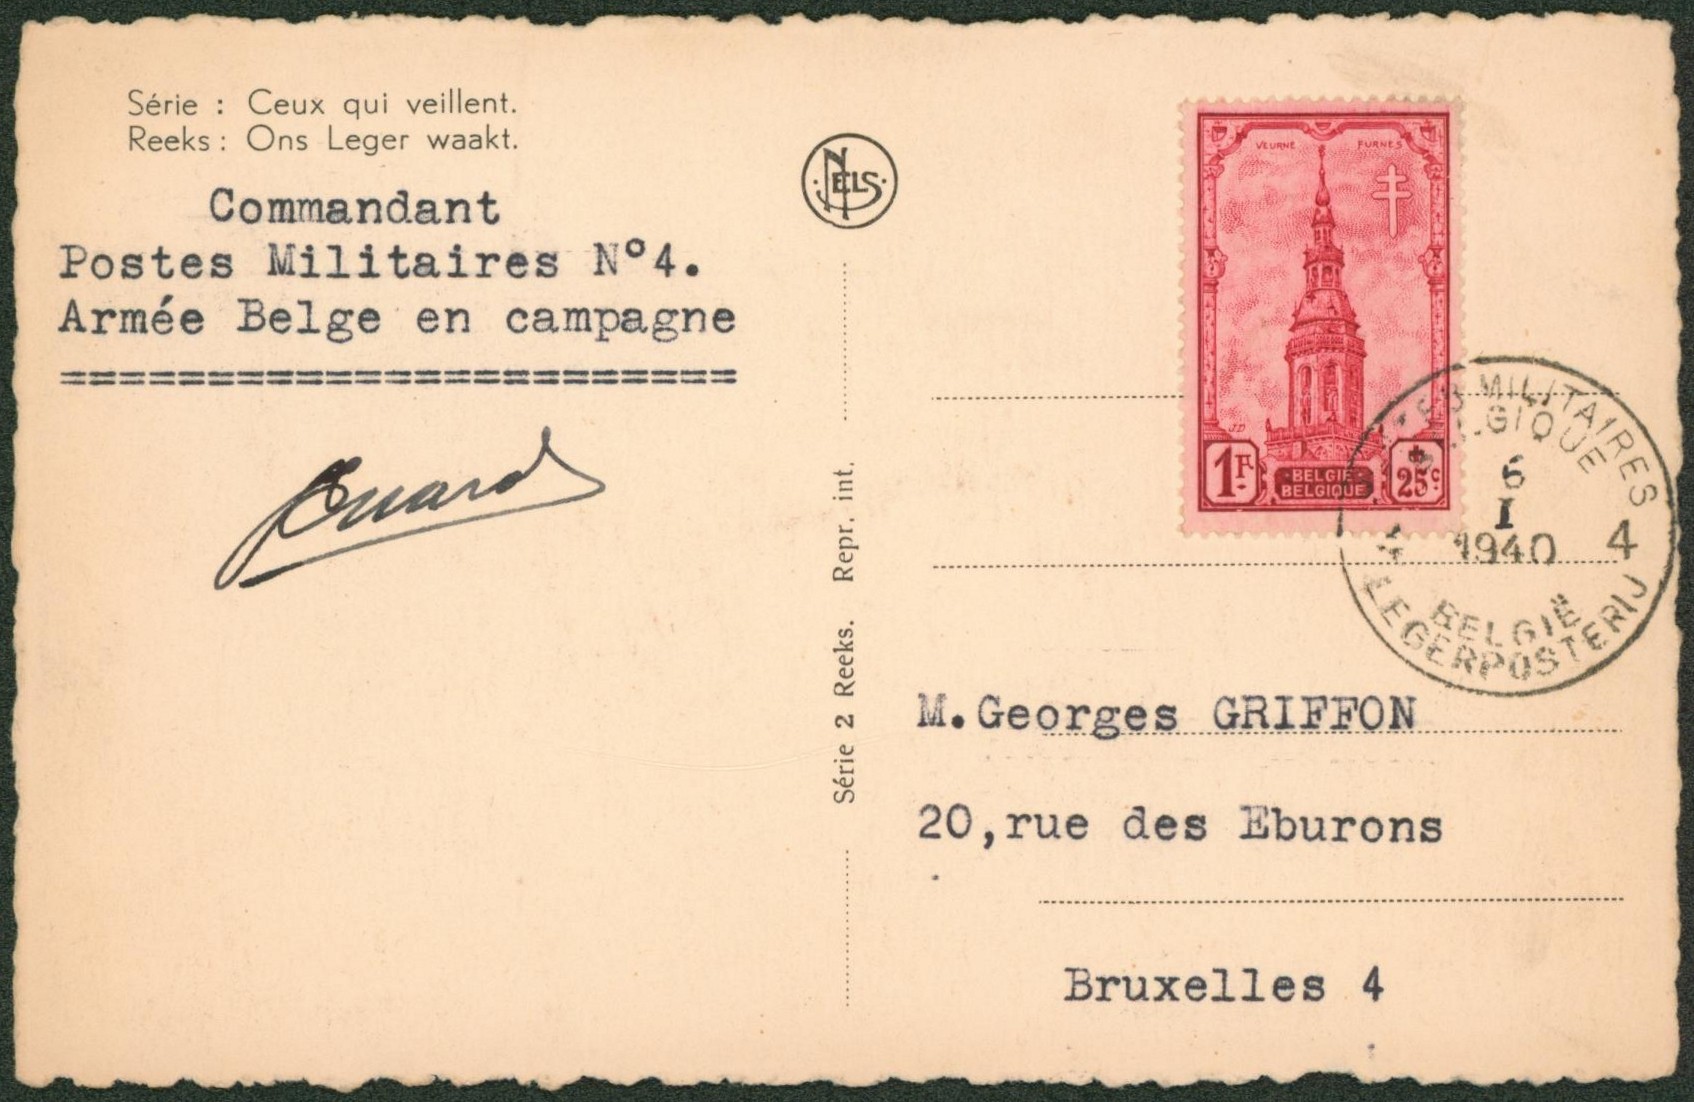 Série : Ceux qui veillent.
Reeks : Ons Leger waakt.
Commandant
Postes Militaires N°4.
Armée Belge en campagne
=======================
NELS
Série 2 Reeks. Repr. int.
VEURNE FURNES
J.D
1F
BELGIE
BELGIQUE
+25c
POSTES MILITAIRES
BELGIQUE
6
I
1940
4 4
BELGIE
LEGERPOSTERIJ
M.Georges GRIFFON
20,rue des Eburons
Bruxelles 4